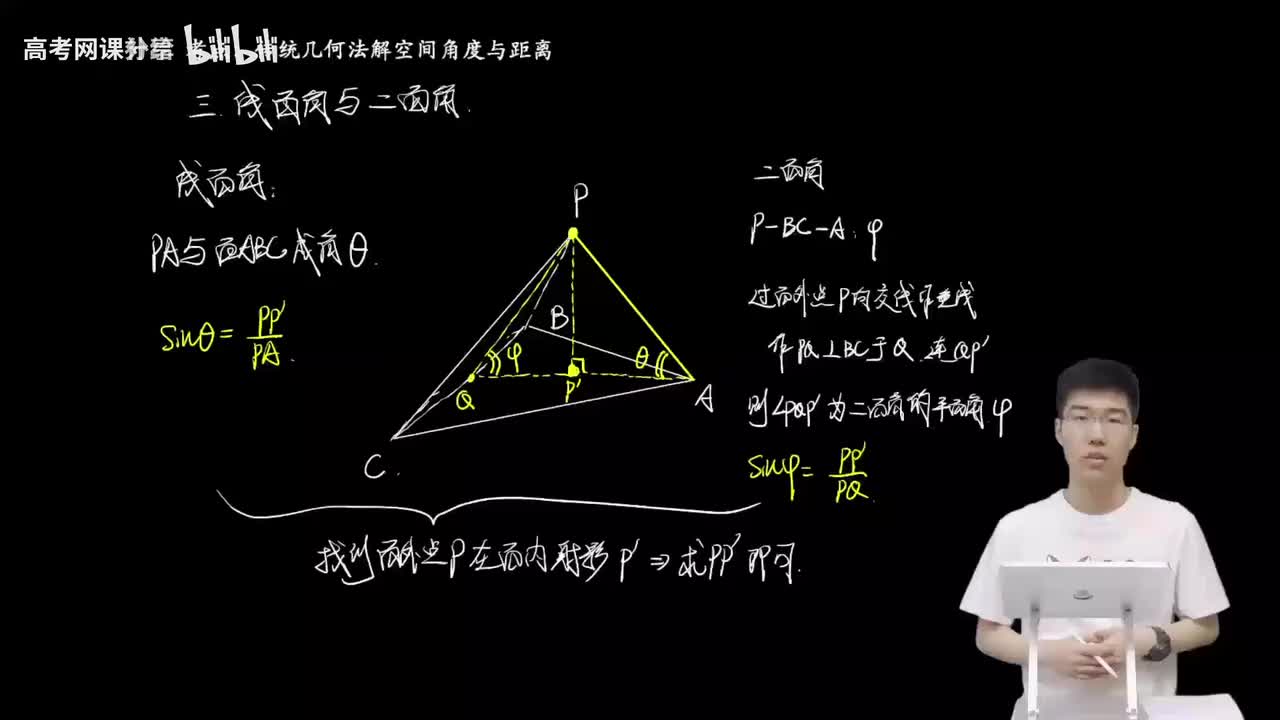 高考网课补给 bilibili 统几何法解空间角度与距离
三.线面角与二面角.
线面角:
PA与面ABC成角θ.
sinθ=PP'/PA.
P
B
φ
θ
Q
P'
A
C.
二面角
P-BC-A:φ
过面外点P向交线作垂线
作PQ⊥BC于Q.连QP'
则∠PQP'为二面角的平面角φ
sinφ=PP'/PQ.
找到面外点P在面内射影P'⇒求PP'即可.